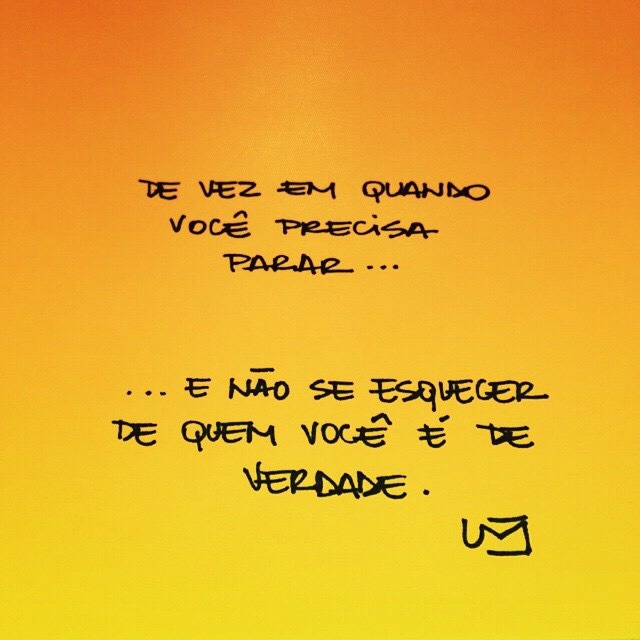 DE VEZ EM QUANDO
VOCÊ PRECISA
PARAR...
... E NÃO SE ESQUECER
DE QUEM VOCÊ É DE
VERDADE.